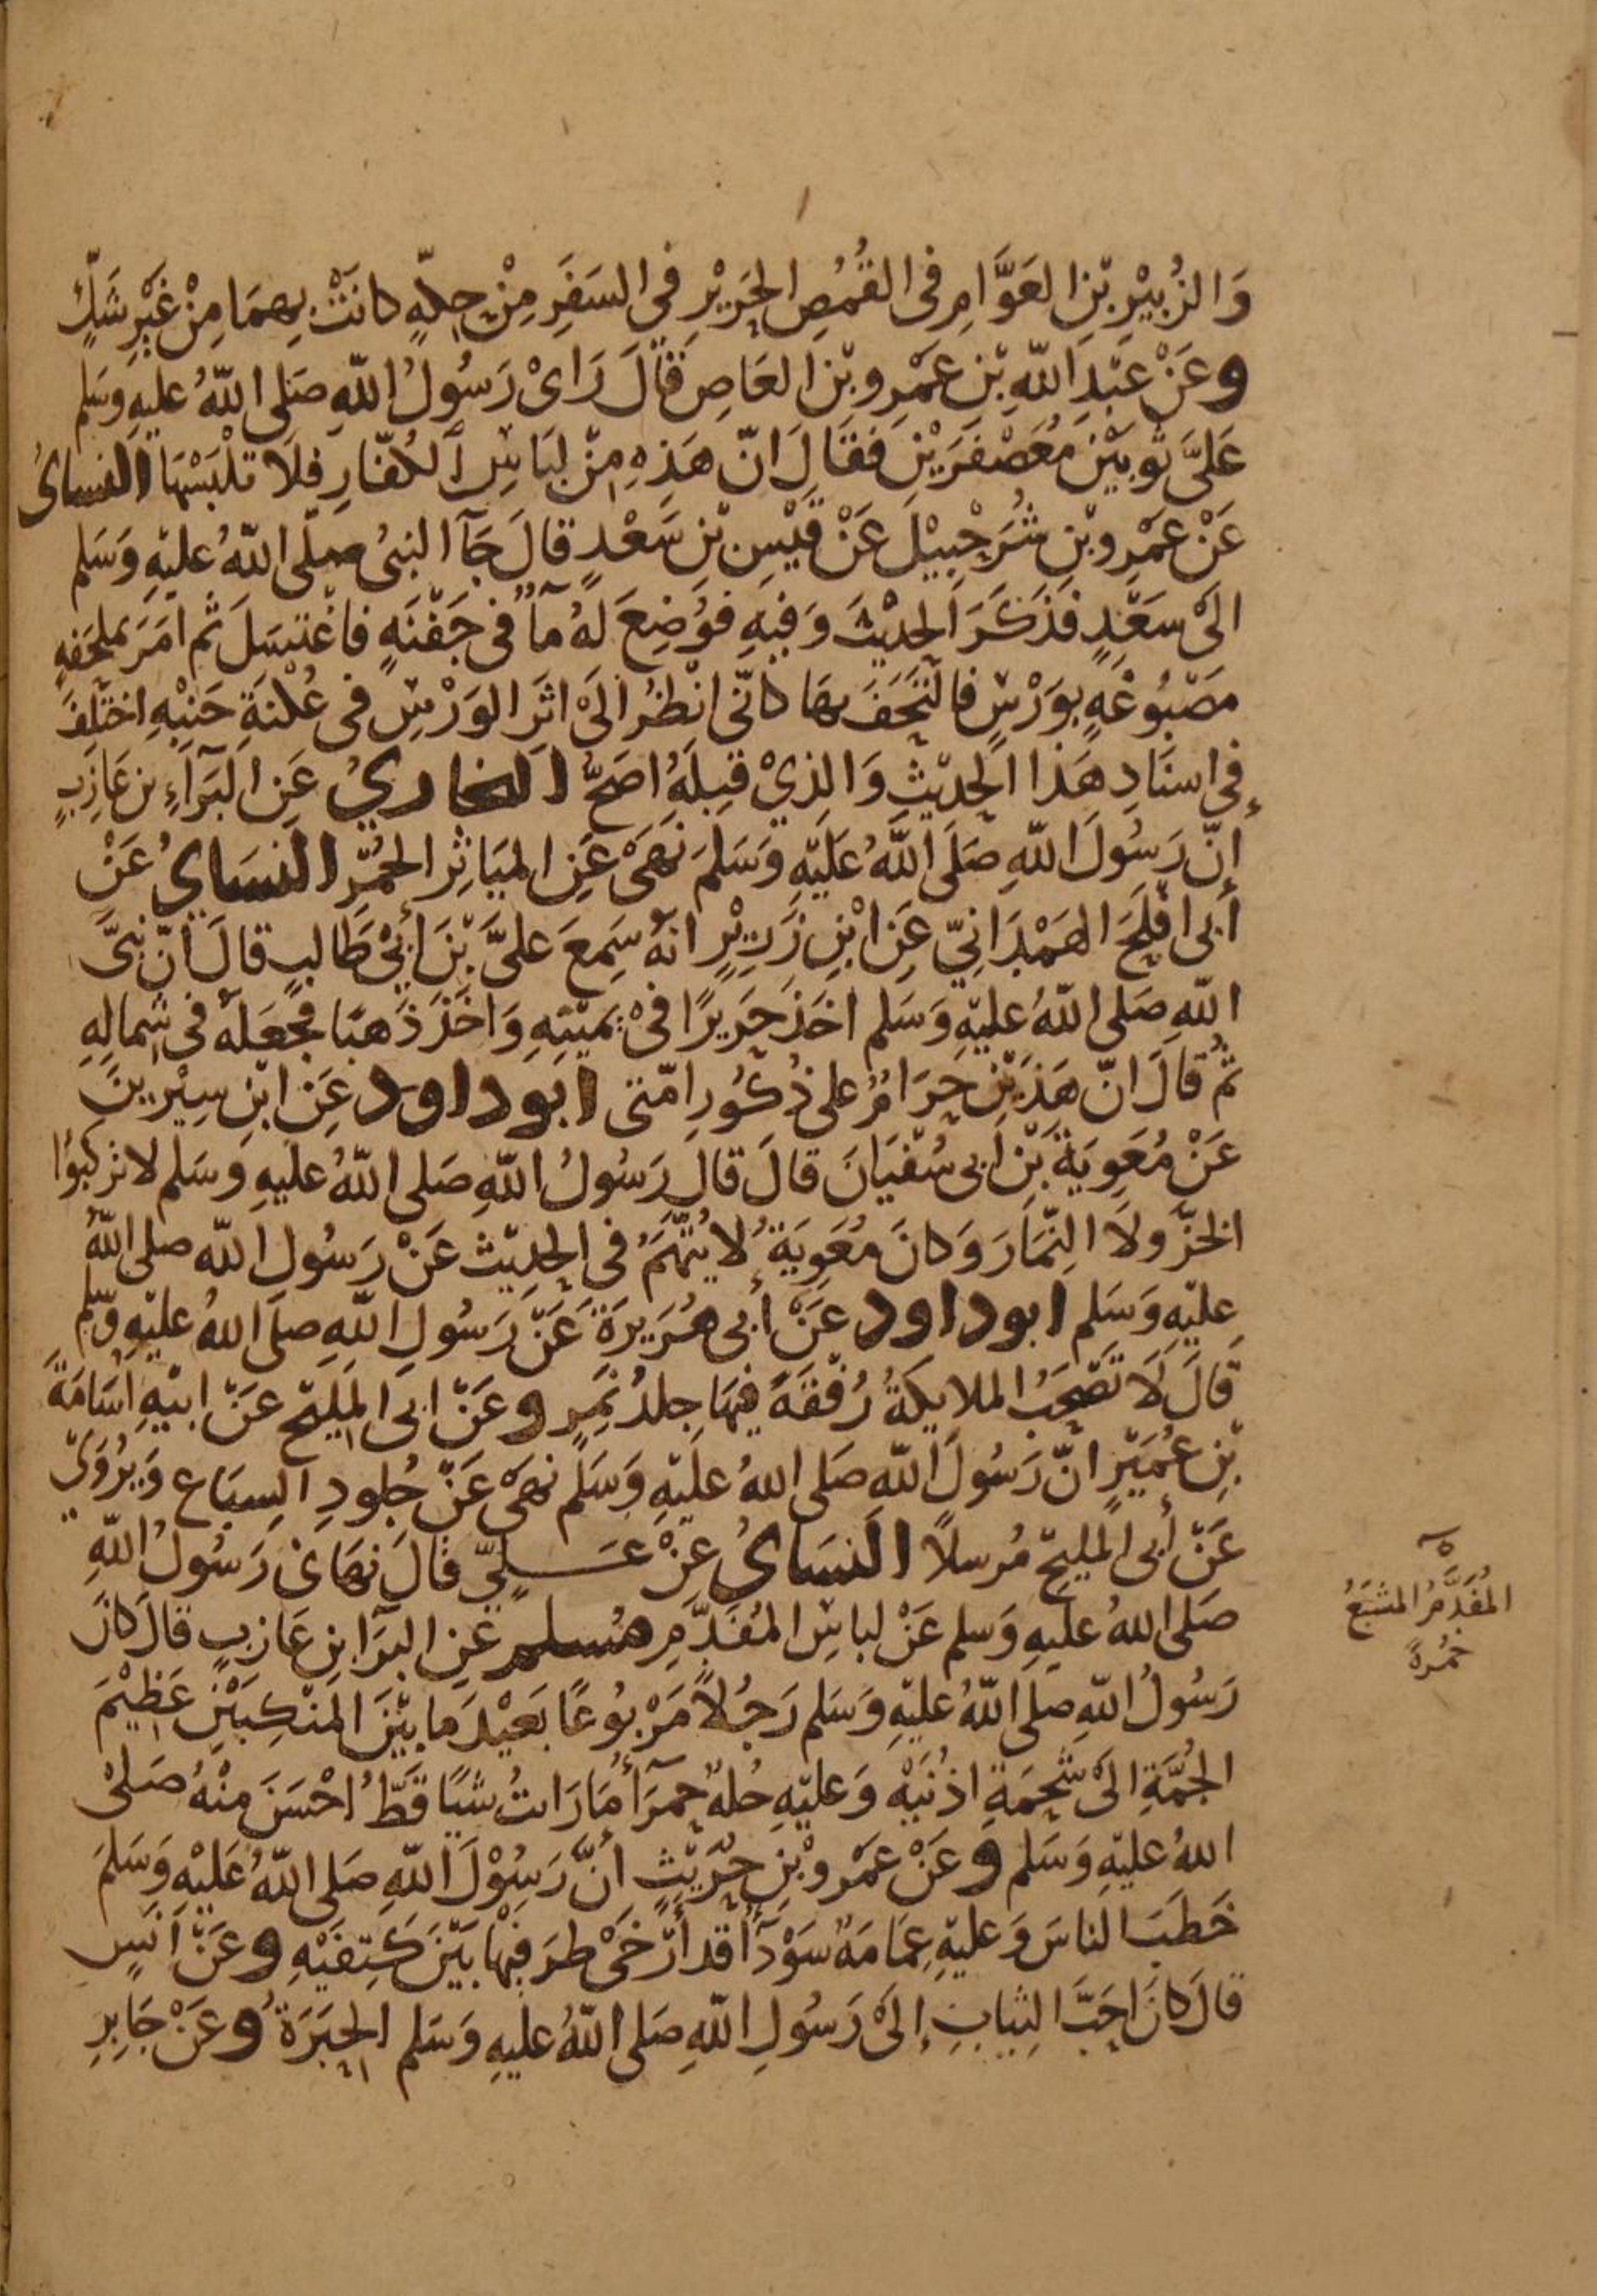 وَالزُبَيْرِ بْنِ العَوَّامِ فِى القُمُصِ الحَرِيْرِ فِى السَفَرِ مِنْ حِكّةٍ كانَتْ بِهِمَا مِنْ غَيْرِ شَكٍّ
وعَنْ عَبْدِ اللّهِ بْنِ عَمْرِو بْنِ العَاصِ قالَ رَاىْ رَسُولُ اللّهِ صَلى اللّهُ عليهِ وَسَلم
عَلىَّ ثوبَيْنِ مُعَصْفرَيْنِ فَقالَ انّ هَذِهِ مِنْ لِبَاسِ الكُفّارِ فلَا تلْبَسْهَا النساىُ
عَنْ عَمْرِو بْنِ شُرَحْبِيْلَ عَنْ قَيْسِ بْنِ سَعْدٍ قالَ جَآ النبىُ صلّى اللّهُ عليْهِ وَسَلم
الَىْ سَعْدٍ فَذَكَرَ الحدِيْثَ وَفيهِ فوُضِعَ لهُ مآءٌ فى جَفْنَهٍ فاغْتسَلَ ثم امَرَ بملحَفهٍ
مَصْبُوغَهٍ بوَرْسٍ فالتَحَفَ بهَا كانّى انْظُرُ الَىْ اثَرِ الوَرْسِ فى عُكْنَةِ جَنْبِهِ اختُلِفَ
فى اسنَادِ هَذا الحدِيْثِ وَالذِيْ قبلَهُ اصَحُّ البخارِيُ عَنِ البَرَآءِ بن عَازِبٍ
إنّ رَسُولَ اللّهِ صَلَى اللّهُ عَلَيْهِ وَسَلمَ نَهىْ عَنِ المَيَاثِرِ الحُمْرِ النسَايُ عَنْ
أبى افْلَحَ الهَمْدَانِيّ عَنِ ابْنِ زُرَيْرٍ انهُ سَمِعَ علىَّ بْنَ ابيْ طَالبٍ قالَ انّ نبىَّ
اللّهِ صَلى اللّهُ عليْهِ وَسَلم اخَذ حَرِيرًا فىْ يَمِيْنِهِ وَاخَذ ذَهبًا فجعَلهُ فى شِمالِهِ
ثمُ قالَ انّ هَذيْنِ حرَامٌ على ذُكُورِ امّتى ابوداود عَنِ ابْنِ سِيْرِينَ
عَنْ مُعَوِيَةَ بْنِ أبى سُفْيَانَ قالَ قال رَسُولُ اللّهِ صَلى اللّهُ عليهِ وَسَلم لا تركبُوا
الخزَّ ولَا النِمَارَ وَكانَ مُعَوِيَةُ لا يُتهَمُ فى الحدِيْث عَنْ رَسُولِ اللّه صلى اللّهُ
عليْهِ وَسَلم ابوداود عَنْ أبى هُرَيرَةَ عَنْ رَسُولِ اللّهِ صلَى اللهُ عليْهِ وَسلم
قالَ لَا تصْحَبُ الملايكةُ رُفْقَةً فيْهَا جِلدُ نمِرٍ وعَنْ ابى المَلِيْح عَنْ ابيْهِ اسَامَةَ
بْنِ عُمَيْرٍ انّ رَسُولَ اللّهِ صَلى اللهُ عليْهِ وَسَلم نهىْ عَنْ جُلودِ السِبَاع وَيرُوَيّ
عَنْ أبى المَلِيْحِ مُرسلاً النسَاىُ عَنْ عَـلِيّ قالَ نهَانى رَسُولُ اللّهِ
صَلى اللهُ عليهِ وَسلم عَنْ لباسِ المُفدَّمِ مُسلم عَنِ البَرَا بنِ عَازبٍ قالَ كانَ
رَسُولُ اللّهِ صلى اللّهُ عليْهِ وَسَلم رَجُلاً مَرْبُوعًا بَعِيْدَ ما بيْنَ المَنْكِبَيْنِ عَظِيْمَ
الجُمَّةِ الَىْ شحْمَةِ اذنَيْهِ وَعليْهِ حُلهٌ حمرَآءُ مَا رَاىتُ شيًا قَطُّ احْسَنَ مِنْهُ صَلىْ
اللهُ عليْهِ وَسَلم وعَنْ عَمْروْ بْنِ حُرَيْثٍ أنَّ رَسُوْلَ اللّهِ صَلى اللّهُ عَلَيْهِ وَسَلمَ
خَطَبَ الناسَ وَعليْهِ عِمَامَهٌ سَوْدآءُ قد أرْخىْ طرَفيْهَا بَيْنَ كَتِفَيْهِ وعَنْ انَسٍ
قالَ كانَ احَبَّ الثِيَابِ إلَىْ رَسُولِ اللّهِ صَلى اللّهُ عليهِ وَسَلم الحِبَرَةُ وعَنْ جَابِرِ
المُفَدَّمُ المشبَعُ
حُمْرةً